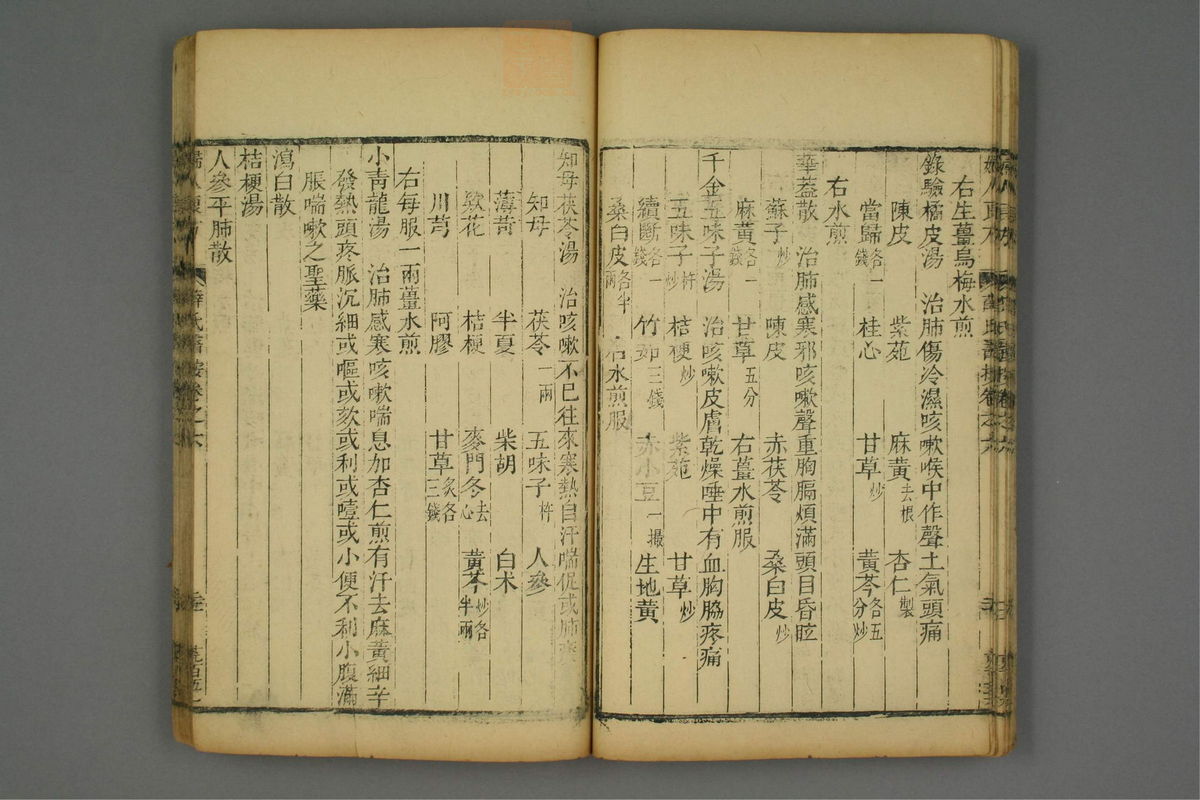 右生薑烏梅水煎
錄驗橘皮湯 治肺傷冷濕咳嗽喉中作聲上氣頭痛
陳皮 紫苑 麻黃去根 杏仁製
當歸各一錢 桂心 甘草炒 黃芩各五分炒
右水煎
華蓋散 治肺感寒邪咳嗽聲重胸膈煩滿頭目昏眩
蘇子炒 陳皮 赤茯苓 桑白皮炒
麻黃各一錢 甘草五分 右薑水煎服
千金五味子湯 治咳嗽皮膚乾燥唾中有血胸脇疼痛
五味子杵炒 桔梗炒 紫苑 甘草炒
續斷各一錢 竹茹三錢 赤小豆一撮 生地黃
桑白皮各半兩 右水煎服
知母茯苓湯 治咳嗽不已往來寒熱自汗喘促或肺痿
知母 茯苓一兩 五味子杵 人參
薄荷 半夏 柴胡 白朮
欵花 桔梗 麥門冬去心 黃芩炒各半兩
川芎 阿膠 甘草炙各三錢
右每服一兩薑水煎
小青龍湯 治肺感寒咳嗽喘息加杏仁煎有汗去麻黃細辛
發熱頭疼脈沉細或嘔或欬或利或噎或小便不利小腹滿
脹喘嗽之聖藥
瀉白散
桔梗湯
人參平肺散
婦人良方 薛氏醫按卷之六